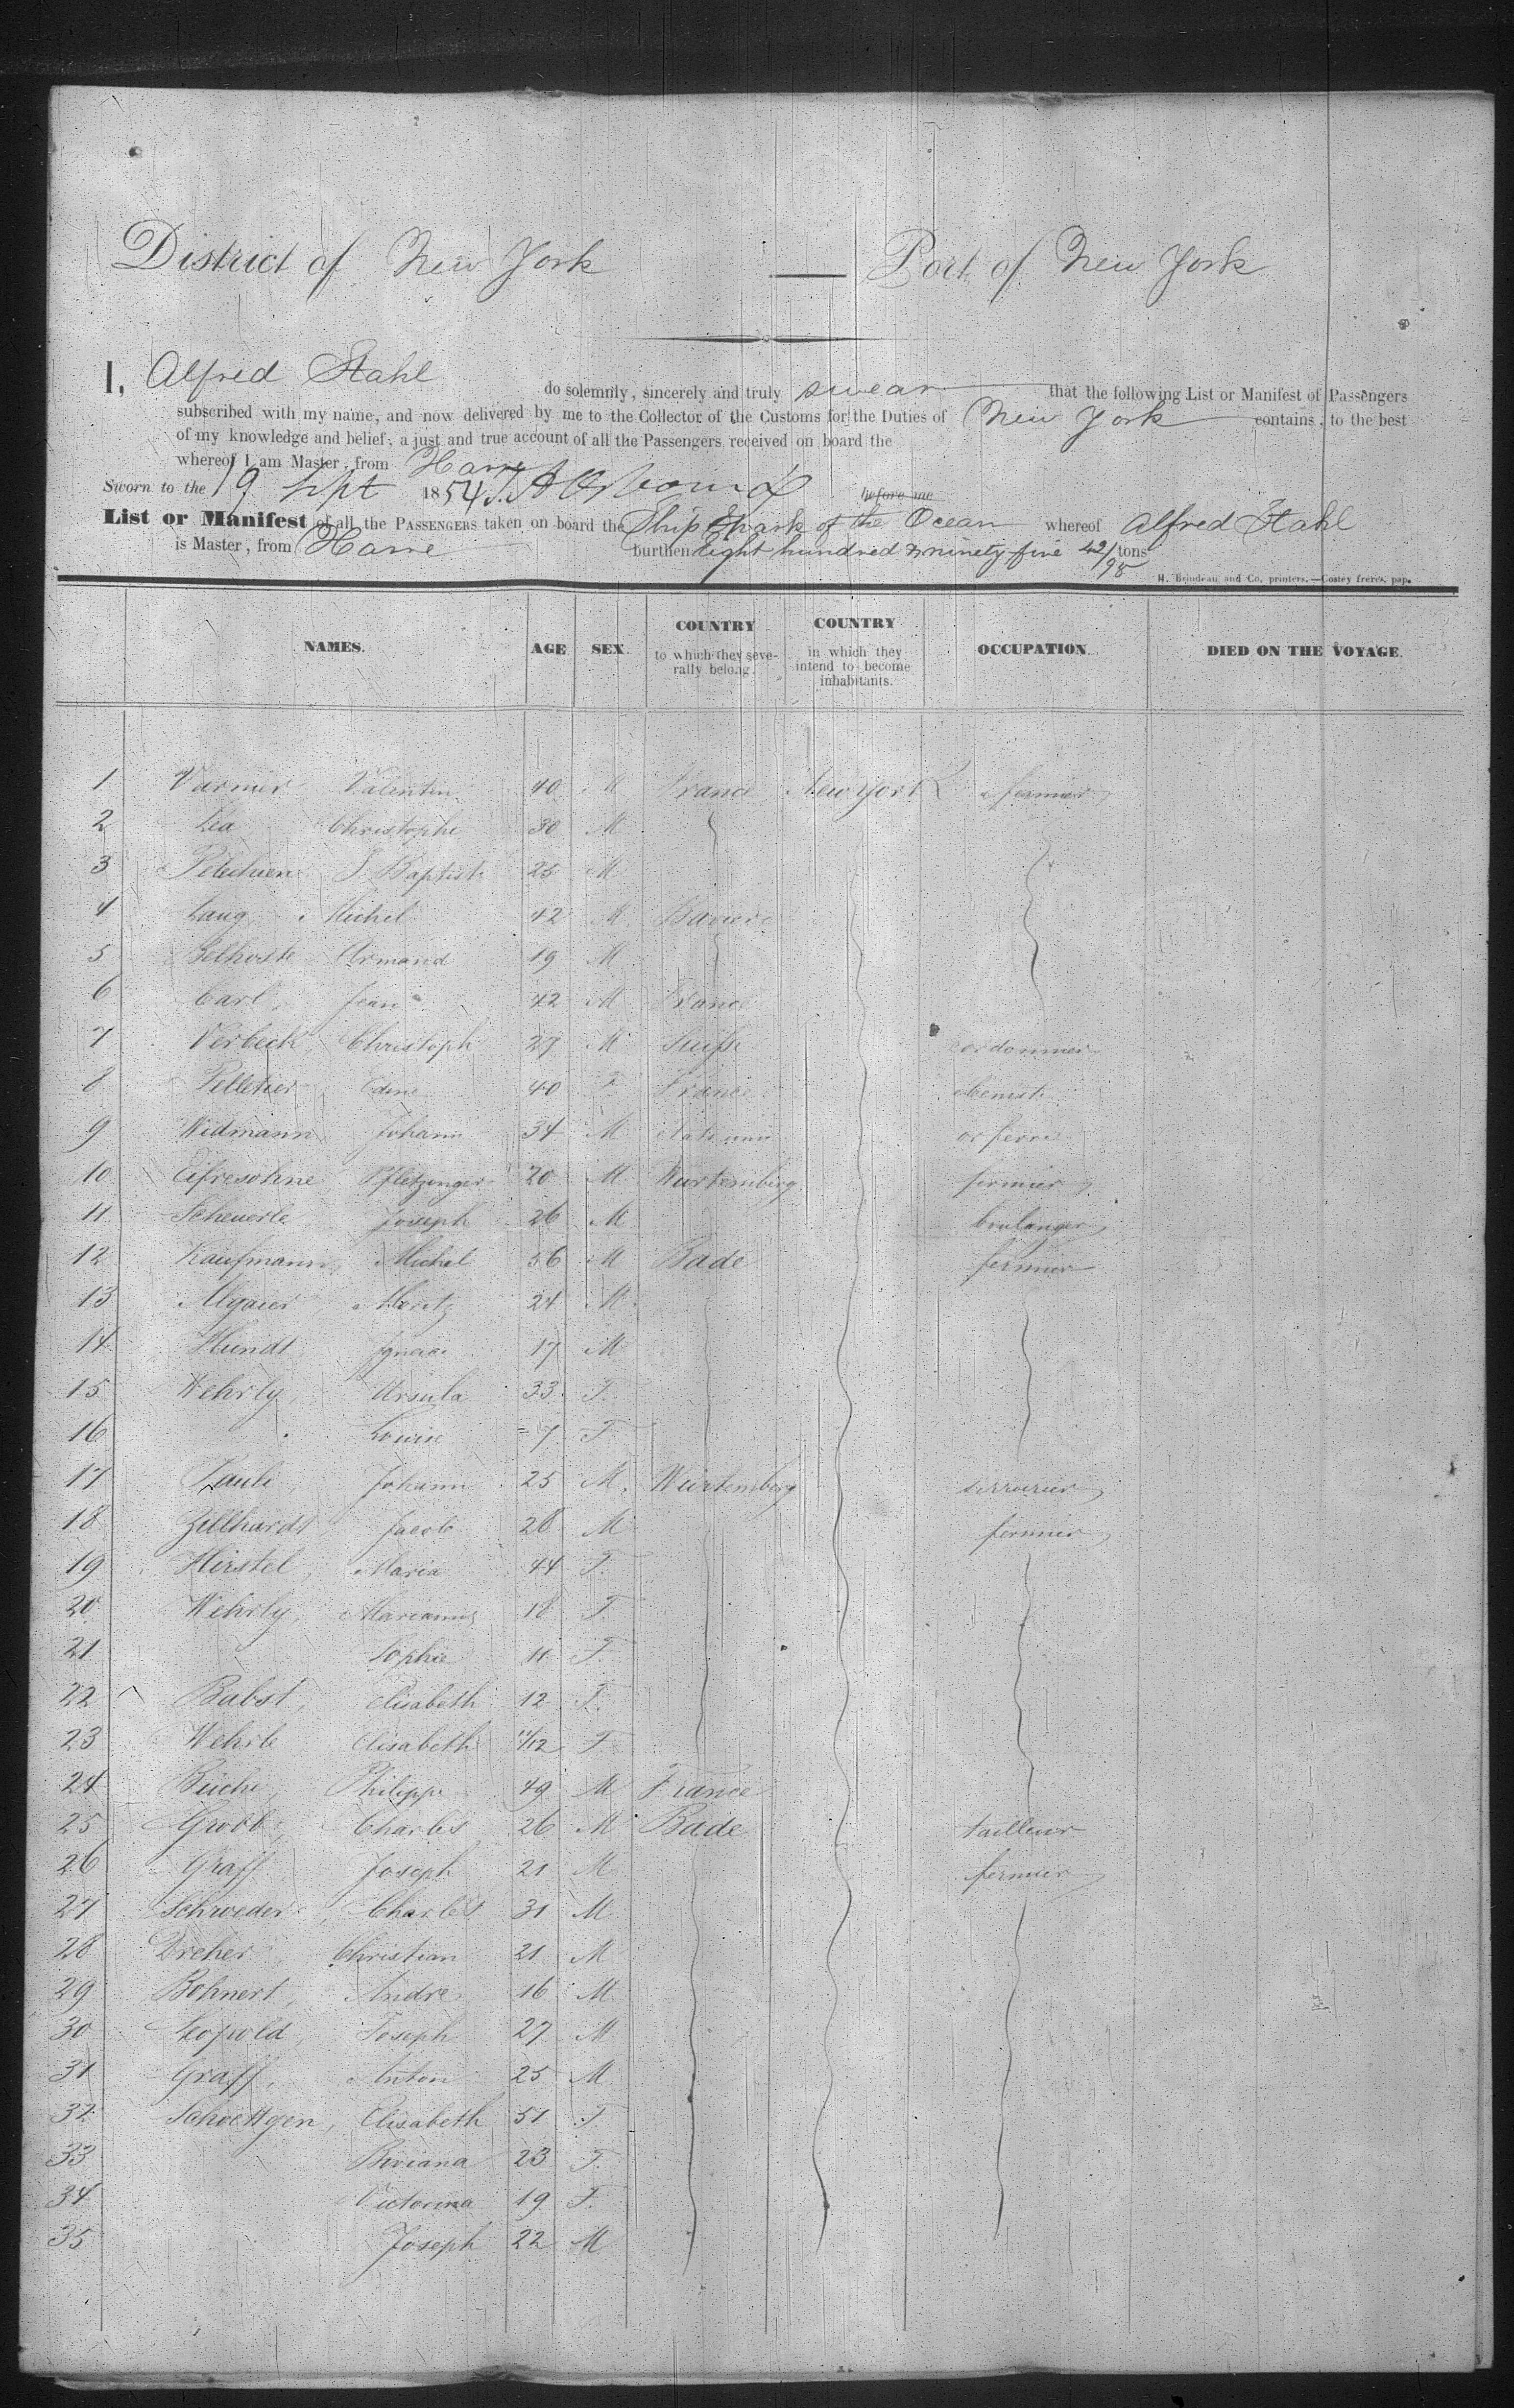 District of New York — Port of New York
I, Alfred Stahl do solemnly, sincerely and truly swear that the following List or Manifest of Passengers
subscribed with my name, and now delivered by me to the Collector of the Customs for the Duties of New York contains, to the best
of my knowledge and belief, a just and true account of all the Passengers received on board the
whereof I am Master, from Havre
Sworn to the 19 Sept 1854 before me
List or Manifest of all the PASSENGERS taken on board the Ship Spark of the Ocean whereof Alfred Stahl
is Master, from Havre burthen Eight hundred & ninety five 42/95 tons
H. Brindeau and Co, printers.—Costey freres, pap.
NAMES. AGE SEX. COUNTRY to which they severally belong. COUNTRY in which they intend to become inhabitants. OCCUPATION. DIED ON THE VOYAGE.
1 Valentin 40 M France New York fermier
2 Lea Christophe 30 M
3 J Baptiste 25 M
4 Lang Michel 42 M Baviere
5 Delhoste Armand 19 M
6 Carl, Jean 42 M France
7 Verbeck Christoph 27 M Suisse cordonnier
8 Pelletier 40 F France
9 Widmann Johann 34 M
10 Pfletzinger 20 M Wurtemberg fermier
11 Scheuerle, Joseph 26 M boulanger
12 Kaufmann, Michel 56 M Bade fermier
13 Moritz 24 M
14 Hundt Ignace 17 M
15 Wehrly, Ursula 33 F.
16 Louise 7 F
17 Johann 25 M. Würtemberg serrurier
18 Zillhardt Jacob 28 M fermier
19 Hirstel, Maria 44 F.
20 Wehrly, 18 F.
21 Sophie 11 F.
22 Babst, Elisabeth 12 F.
23 Wehrle Elisabeth 11/12 F
24 Philippe 49 M France
25 Grobb, Charles 26 M Bade tailleur
26 Graff Joseph 21 M fermier
27 Schweder, Charles 31 M
28 Dreher, Christian 21 M
29 Bohnert, Andre 16 M
30 Leopold, Joseph 27 M
31 Graff, Anton 25 M
32 Schoettgen, Elisabeth 51 F.
33 Biviana 23 F.
34 Victorina 19 F.
35 Joseph 22 M